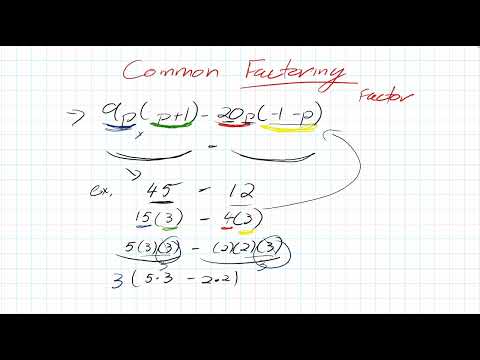 Common Factoring
Factor
9p(p+1) - 20p(-1-p)
-
ex. 45 - 12
15(3) - 4(3)
5(3)(3) - (2)(2)(3)
3(5·3 - 2·2)